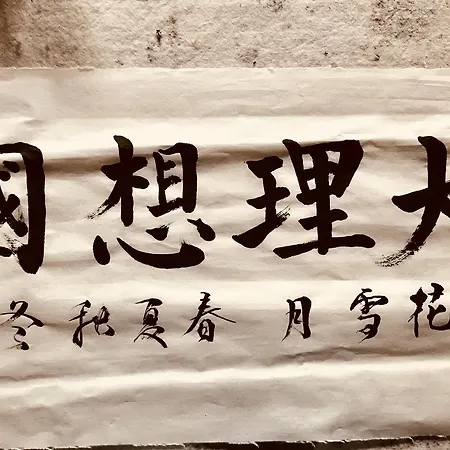 大理想國
花雪月 春夏秋冬